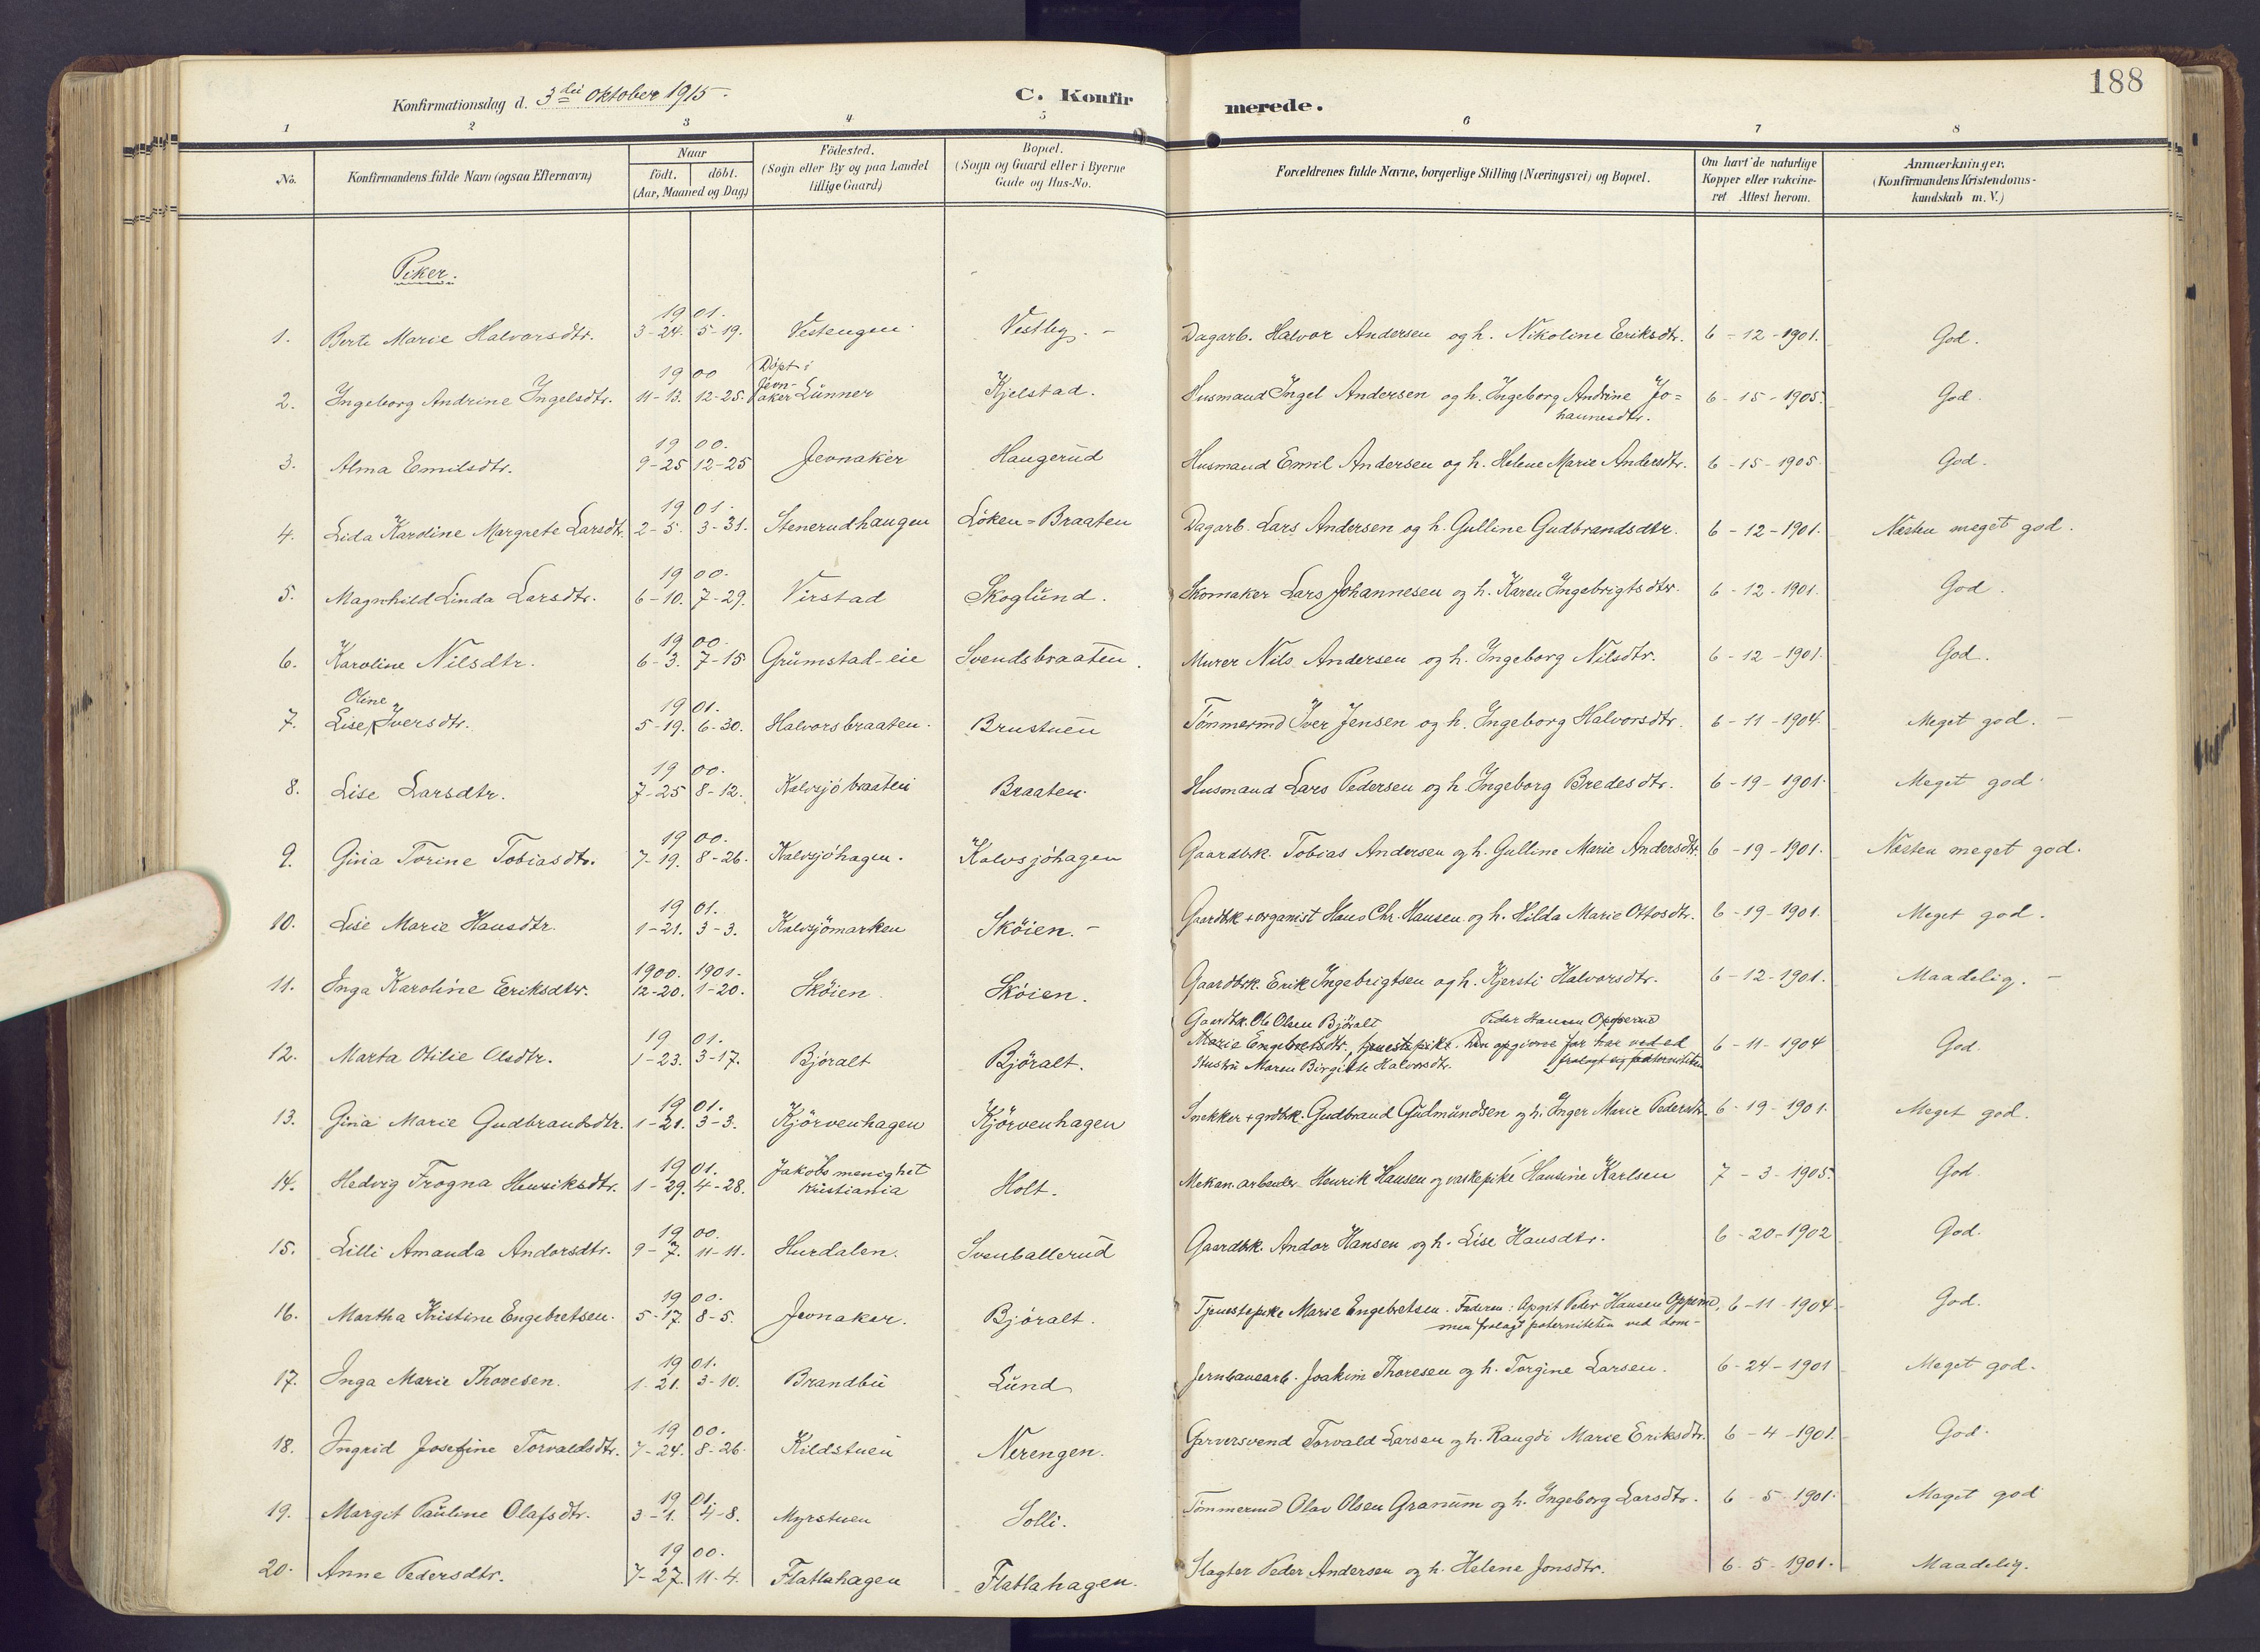 188
Konfirmationsdag d. 3die Oktober 1915.
C. Konfirmerede.
1 2 3 4 5 6 7 8
No.
Konfirmandens fulde Navn (ogsaa Efternavn)
Naar
födt. döbt.
(Aar, Maaned og Dag)
Födested.
(Sogn eller By og paa Landet
tillige Gaard)
Bopæl.
(Sogn og Gaard eller i Byerne
Gade og Hus-No.
Forældrenes fulde Navne, borgerlige Stilling (Næringsvei) og Bopæl.
Om havt de naturlige
Kopper eller vakcine-
ret Attest herom.
Anmærkninger.
(Konfirmandens Kristendoms-
kundskab m. V.)
Piker.
1901.
1. Berte Marie Halvorsdtr. 3-24. 5-19. Vestengen. Vestby. - Dagarb. Halvor Andersen og h. Nikoline Eriksdtr. 6-12-1901. God.
1900 Döpt i
Jevn-
2. Ingeborg Andrine Ingelsdtr. 11-13. 12-25. aker Lunner Kjelstad. Husmand Ingel Andersen og h. Ingeborg Andrine Jo= 6-15-1905. God.
hannesdtr.
1900.
3. Alma Emilsdtr. 9-25 12-25 Jevnaker Haugerud Husmand Emil Andersen og h. Helene Marie Andersdtr. 6-15-1905. God.
1901.
4. Lida Karoline Margrete Larsdtr. 2-5. 3-31. Stenerudhaugen Löken=Braaten Dagarb. Lars Andersen og h. Gulline Gudbrandsdtr. 6-12-1901. Næsten meget god.
1900.
5. Magnhild Linda Larsdtr. 6-10. 7-29. Virstad Skoglund. Skomaker Lars Johannesen og h. Karen Ingebrigtsdtr. 6-12-1901. God.
1900.
6. Karoline Nilsdtr. 6-3. 7-15 Grumstad-eie Svendsbraaten. Murer Nils Andersen og h. Ingeborg Nilsdtr. 6-12-1901. God.
Oline 1901.
7. Lise Iversdtr. 5-19. 6-30. Halvorsbraaten. Brustuen Tömmermd Iver Jensen og h. Ingeborg Halvorsdtr. 6-11-1904. Meget god. -
1900.
8. Lise Larsdtr. 7-25 8-12. Kalvsjöbraaten Braaten. Husmand Lars Pedersen og h. Ingeborg Bredesdtr. 6-19-1901. Meget god.
1900.
9. Gina Torine Tobiasdtr. 7-19. 8-26. Kalvsjöhagen. Kalvsjöhagen Gaardbk. Tobias Andersen og h. Gulline Marie Andersdtr. 6-19-1901. Næsten meget god.
1901.
10. Lise Marie Hansdtr. 1-21. 3-3. Kalvsjömarken Sköien. - Gaardbk + organist Hans Chr. Hansen og h. Hilda Marie Ottosdtr. 6-19-1901. Meget god.
1900. 1901.
11. Inga Karoline Eriksdtr. 12-20. 1-20. Sköien Sköien. Gaardbk. Erik Ingebrigtsen og h. Kjersti Halvorsdtr. 6-12-1901. Maadelig. -
Gaardbk. Ole Olsen Björalt Peder Hansen
1901.
12. Marta Otilie Olsdtr. 1-23. 3-17. Björalt Björalt. Marie Engebretsdtr., tjenestepike. Den opgivne far har ved ed 6-11-1904 God.
Hustru Maren Birgitte Halvorsdtr. fralagt sig paterniteten
1901.
13. Gina Marie Gudbrandsdtr. 1-21. 3-3. Kjörvenhagen Kjörvenhagen Snekker + grdbk. Gudbrand Gudmundsen og h. Inger Marie Pedersdtr. 6-19-1901. Meget god.
1901. Jakobs menighet
14. Hedvig Frogna Henriksdtr. 1-29. 4-28. Kristiania Holt. Mekan. arbeider Henrik Hansen og vaskepike Hansine Karlsen 7-3-1905. God.
1900.
15. Lilli Amanda Andorsdtr. 9-7. 11-11. Hurdalen. Svenballerud Gaardbk. Andor Hansen og h. Lise Hansdtr. 6-20-1902 God.
1900.
16. Martha Kristine Engebretsen. 5-17. 8-5. Jevnaker. Björalt. Tjenestepike Marie Engebretsen. Faderen: Opgit Peder Hansen 6-11-1904. God.
men fralagt paterniteten ved dom-
1901.
17. Inga Marie Thoresen. 1-21. 3-10. Brandbu Lund Jernbanearb. Joakim Thoresen og h. Torgine Larsen. 6-24-1901 Meget god.
1900.
18. Ingrid Josefine Torvaldsdtr. 7-24. 8-26. Kildstuen Nerengen. Garversvend Torvald Larsen og h. Rangdi Marie Eriksdtr. 6-4-1901. God.
1901.
19. Margit Pauline Olafsdtr. 3-1. 4-8. Myrstuen Solli. Tömmermd Olav Olsen Granum og h. Ingeborg Larsdtr. 6-5-1901. Meget god
1900.
20. Anne Pedersdtr. 7-27. 11-4. Flatlahagen Flatlahagen. Slagter Peder Andersen og h. Helene Jonsdtr. 6-5-1901. Maadelig.